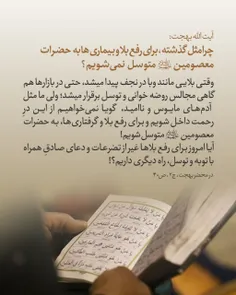 آیت الله بهجت:
چرا مثل گذشته، برای رفع بلا و بیماری‌ها به حضرات
معصومین ﷺ متوسل نمی‌شویم؟
وقتی بلایی مانند وبا در نجف پیدا میشد، حتی در بازارها هم
گاهی مجالس روضه خوانی و توسل برقرار میشد؛ ولی ما مثل
آدم‌های مایوس و ناامید، گویا نمی‌خواهیم از این در
رحمت داخل شویم و برای رفع بلا و گرفتاری‌ها، به حضرات
معصومین ﷺ متوسل شویم!
آیا امروز برای رفع بلاها غیر از تضرعات و دعای صادق همراه
با توبه و توسل، راه دیگری داریم؟!
در محضر بهجت، ج۲، ص۴۰